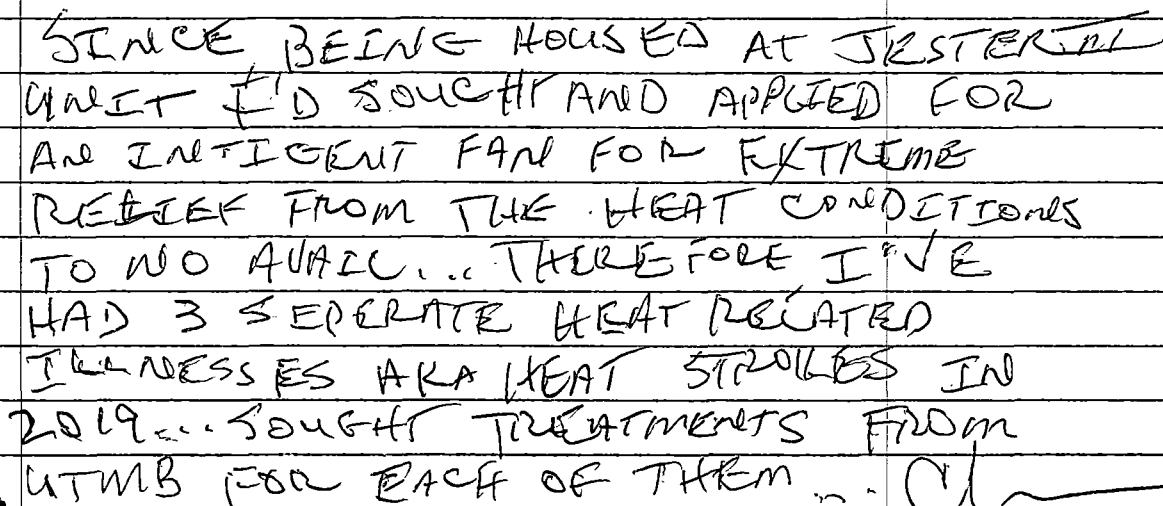 SINCE BEING HOUSED AT JESTER III
UNIT I'D SOUGHT AND APPLIED FOR
AN INTIGENT FAN FOR EXTREME
RELIEF FROM THE HEAT CONDITIONS
TO NO AVAIL... THEREFORE I'VE
HAD 3 SEPERATE HEAT RELATED
ILLNESSES AKA HEAT STROKES IN
2019... SOUGHT TREATMENTS FROM
UTMB FOR EACH OF THEM...